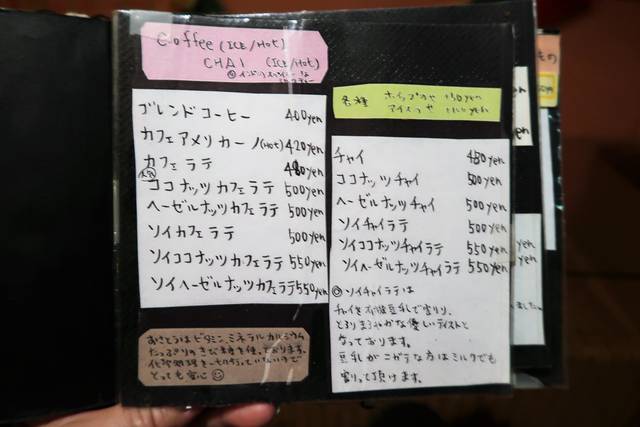 Coffee (ICE/HOT)
CHAI (ICE/HOT)
ブレンドコーヒー 400yen
カフェアメリカーノ(HOT) 420yen
カフェラテ 480yen
ココナッツカフェラテ 500yen
ヘーゼルナッツカフェラテ 500yen
ソイカフェラテ 500yen
ソイココナッツカフェラテ 550yen
ソイヘーゼルナッツカフェラテ 550yen
おさとうはビタミン、ミネラル カルシウム
たっぷりのきび糖を使っております。
化学処理を一切行っていないので
とっても安心
各種 ホイップのせ 150yen
アイスのせ
チャイ 450yen
ココナッツチャイ 500yen
ヘーゼルナッツチャイ 500yen
ソイチャイラテ 500yen
ソイココナッツチャイラテ 550yen
ソイヘーゼルナッツチャイラテ 550yen
◎ソイチャイラテは
チャイを有機豆乳で割り、
とろりまろやかな優しいテイストと
なっております。
豆乳がニガテな方はミルクでも
割って頂けます。
もの
yen
yen